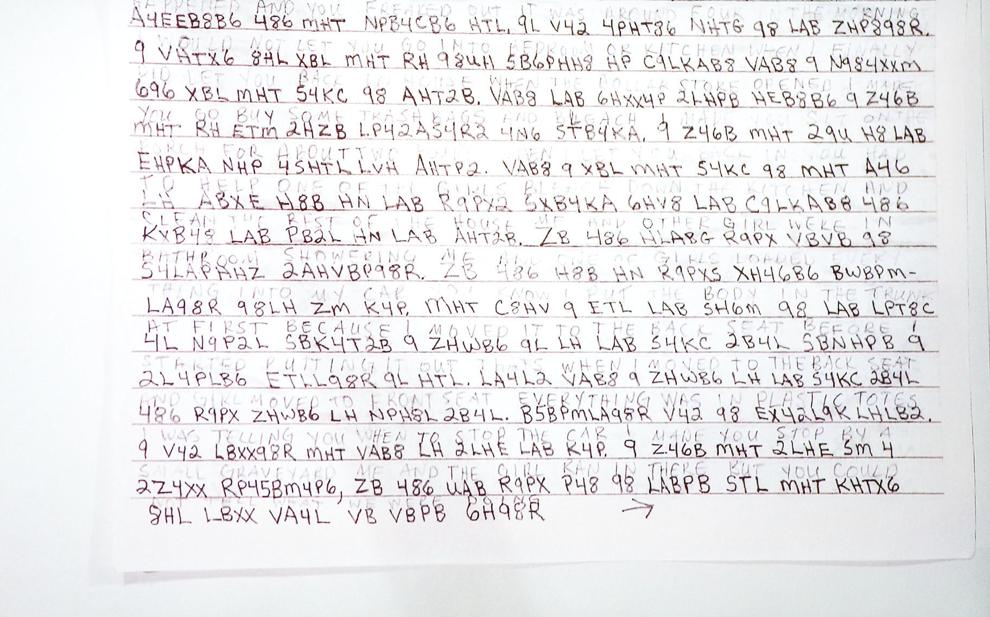 HAPPENED AND YOU FREAKED OUT IT WAS AROUND FOUR IN THE MORNING
A4EEB8B6 486 MHT NPB4CB6 HTL, 9L V42 4PHT86 NHTG 98 LAB ZHP898R.
I WOULD NOT LET YOU GO INTO BEDROOM OR KITCHEN WHEN I FINALLY
9 VHTX6 8HL XBL MHT RH 98UH 5B6PHH8 HP C9LKAB8 VAB8 9 N984XXM
DID LET YOU BACK IN HOUSE WHEN THE DOLLAR STORE OPENED I MADE
696 XBL MHT 54KC 98 AHT2B. VAB8 LAB 6HXX4P 2LHPB HEB8B6 9 Z46B
YOU GO BUY SOME TRASH BAGS AND BLEACH, I MADE YOU SIT ON THE
MHT RH ETM 2HZB LP42A54R2 4N6 5TB4KA, 9 Z46B MHT 29U H8 LAB
PORCH FOR ABOUT TWO WHEN I LET YOU BACK IN YOU HAD
EHPKA NHP 45HTL LVH AHTP2. VAB8 9 XBL MHT 54KC 98 MHT A46
TO HELP ONE OF THE GIRLS BLEACH DOWN THE KITCHEN AND
LH ABXE H8B HN LAB R9PX2 5XB4KA 6HV8 LAB C9LKAB8 486
CLEAN THE REST OF THE HOUSE ME AND OTHER GIRL WERE IN
KXB48 LAB PB2L HN LAB AHT2B. ZB 486 HLA8G R9PX VBVB 98
BATHROOM SHOWERING ME AND ONE OF GIRLS LOADED EVERY
54LAPHHZ 2AHVBP98R. ZB 486 H8B HN R9PXS XH46B6 BWBPM-
THING INTO MY CAR YOU KNOW I PUT THE BODY IN THE TRUNK
LA98R 98LH ZM K4P. MHT C8HV 9 ETL LAB 5H6M 98 LAB LPT8C
AT FIRST BECAUSE I MOVED IT TO THE BACK SEAT BEFORE I
4L N9P2L 5BK4T2B 9 ZHWB6 9L LH LAB 54KC 2B4L 5BNHPB 9
STARTED PUTTING IT OUT THATS WHEN I MOVED TO THE BACK SEAT
2L4PLB6 ETLL98R 9L HTL. LA4L2 VAB8 9 ZHWB6 LH LAB 54KC 2B4L
AND GIRL MOVED TO FRONT SEAT EVERYTHING WAS IN PLASTIC TOTES
486 R9PX ZHWB6 LH NPH8L 2B4L. B5BPMLA98R V42 98 EX42L9K LHLB2.
I WAS TELLING YOU WHEN TO STOP THE CAR I MADE YOU STOP BY A
9 V42 LBXX98R MHT VAB8 LH 2LHE LAB K4P. 9 Z46B MHT 2LHE 5M 4
SMALL GRAVEYARD ME AND THE GIRL RAN IN THERE BUT YOU COULD
2Z4XX RP45BM4P6, ZB 486 UAB R9PX P48 98 LABPB 5TL MHT KHTX6
8HL LBXX VA4L VB VBPB 6H98R →